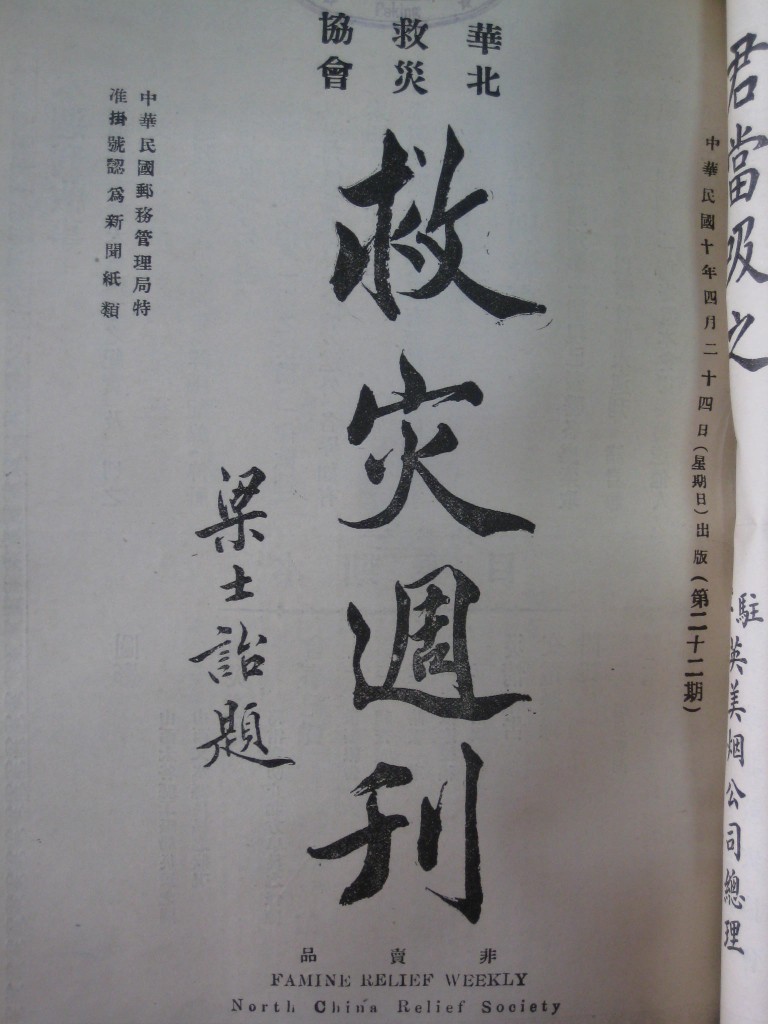 君當吸之
駐英美烟公司總理
中華民國十年四月二十四日(星期日)出版(第二十二期)
華北
救災
協會
救灾週刊
梁士詒題
中華民國郵務管理局特
准掛號認爲新聞紙類
非賣品
FAMINE RELIEF WEEKLY
North China Relief Society